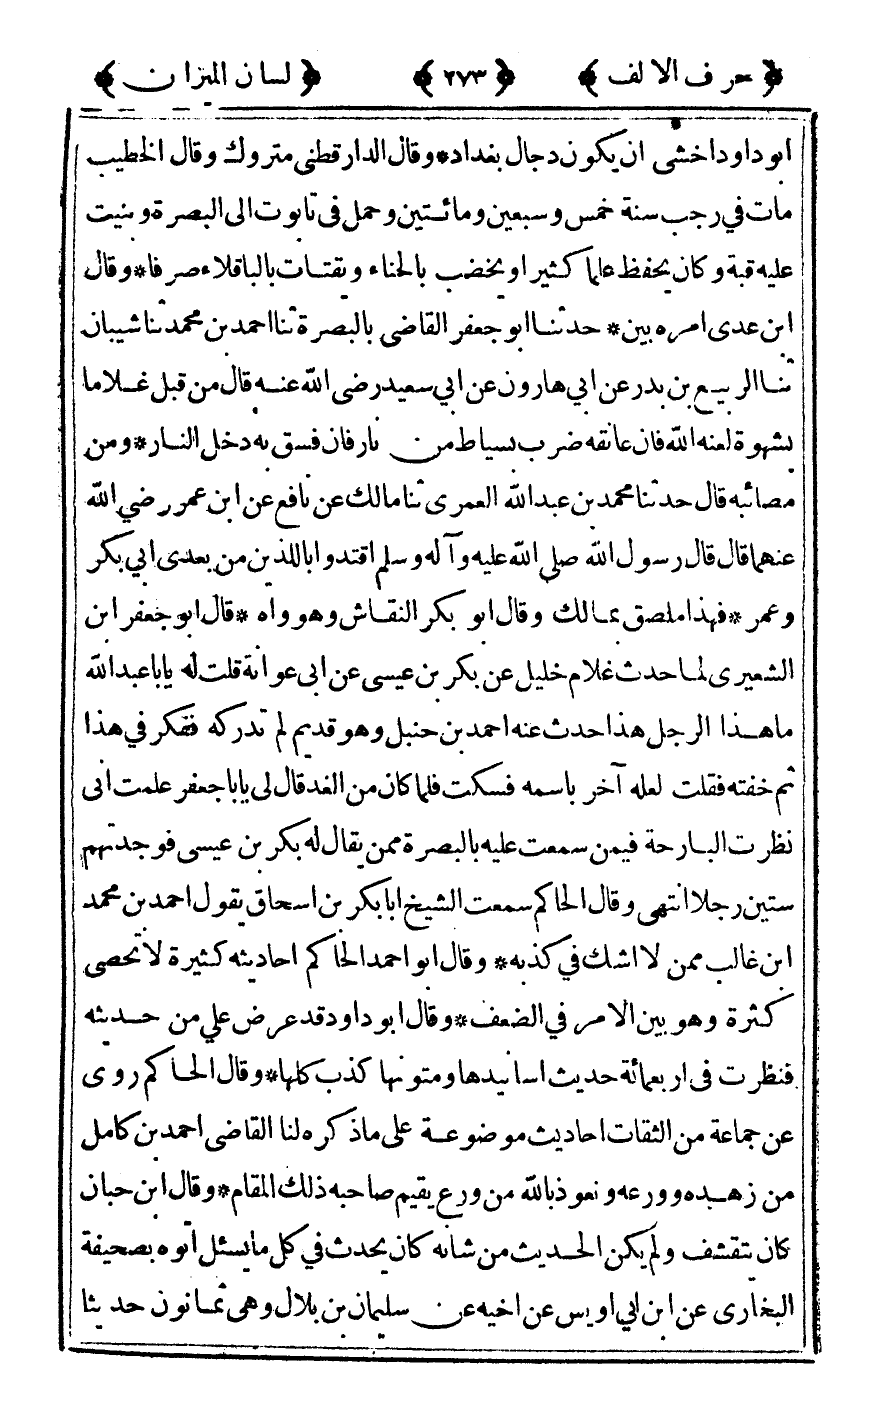 ﴿ حرف الالف ﴾ ﴿ ٢٧٣ ﴾ ﴿ لسان الميزان ﴾
ابو داود اخشى ان يكون دجال بغداد * وقال الدار قطنى متروك وقال الخطيب
مات في رجب سنة خمس وسبعين ومائتين وحمل فى تابوت الى البصرة وبنيت
عليه قبة وكان يحفظ علما كثيرا ويخضب بالحناء ويقتات بالباقلاء صرفا * وقال
ابن عدى امره بين * حدثنا ابو جعفر القاضى بالبصرة ثنا احمد بن محمد ثنا شيبان
ثنا الربيع بن بدر عن ابي هارون عن ابي سعيد رضى الله عنه قال من قبل غلاما
بشهوة لعنه الله فان عانقه ضرب بسياط من نار فان فسق به دخل النار * ومن
مصائبه قال حدثنا محمد بن عبد الله العمرى ثنا مالك عن نافع عن ابن عمر رضي الله
عنهما قال قال رسول الله صلى الله عليه وآله وسلم اقتدوا باللذين من بعدى ابي بكر
وعمر * فهذا ملصق بمالك وقال ابو بكر النقاش وهو واه * قال ابو جعفر ابن
الشعيرى لما حدث غلام خليل عن بكر بن عيسى عن ابى عوانة قلت له يابا عبد الله
ما هذا الرجل هذا حدث عنه احمد بن حنبل وهو قديم لم تدركه ففكر في هذا
ثم خفته فقلت لعله آخر باسمه فسكت فلما كان من الغد قال لى يابا جعفر علمت انى
نظرت البارحة فيمن سمعت عليه بالبصرة ممن يقال له بكر بن عيسى فوجدتهم
ستين رجلا انتهى وقال الحاكم سمعت الشيخ ابا بكر بن اسحاق يقول احمد بن محمد
ابن غالب ممن لا اشك في كذبه * وقال ابو احمد الحاكم احاديثه كثيرة لا تحصى
كثرة وهو بين الامر في الضعف * وقال ابو داود قد عرض علي من حديثه
فنظرت فى اربعمائة حديث اسانيدها ومتونها كذب كلها * وقال الحاكم روى
عن جماعة من الثقات احاديث موضوعة على ماذكره لنا القاضى احمد بن كامل
من زهده وورعه ونعوذ بالله من ورع يقيم صاحبه ذلك المقام * وقال ابن حبان
كان يتقشف ولم يكن الحديث من شانه كان يحدث في كل ما يسئل اتوه بصحيفة
البخارى عن ابن ابي اويس عن اخيه عن سليمان بن بلال وهى ثمانون حديثا